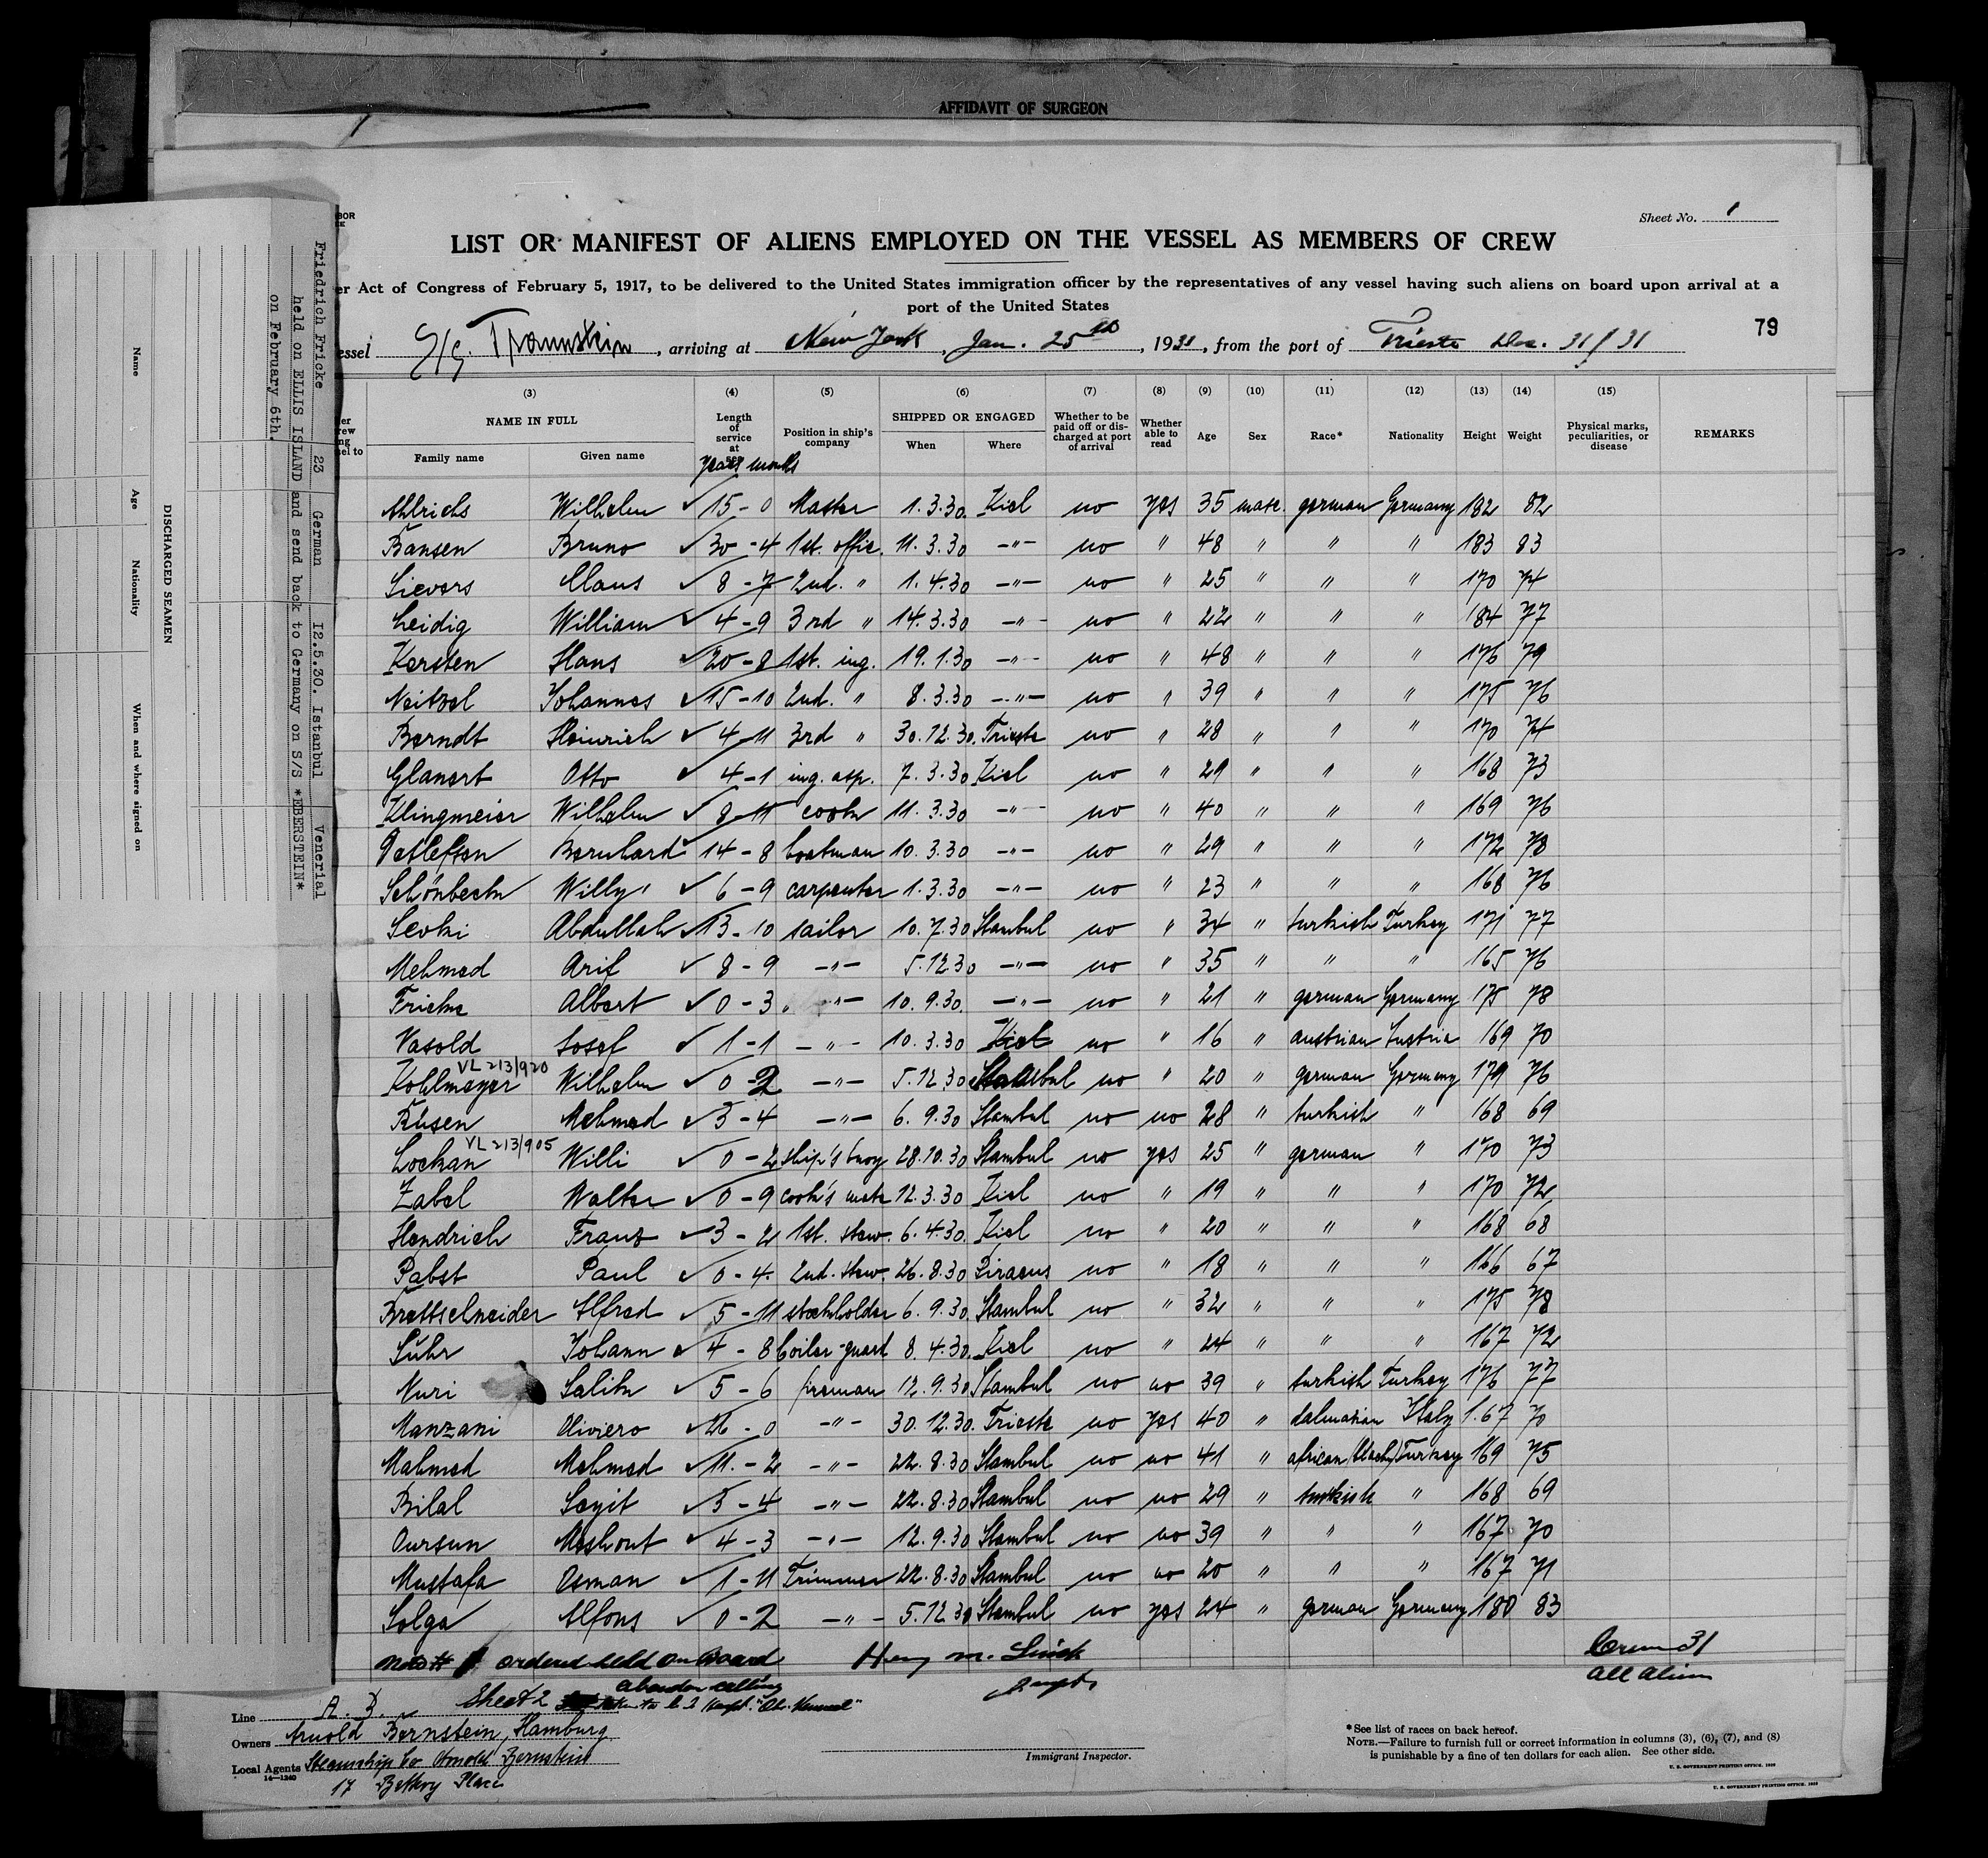 AFFIDAVIT OF SURGEON
Sheet No. 1
LIST OR MANIFEST OF ALIENS EMPLOYED ON THE VESSEL AS MEMBERS OF CREW
er Act of Congress of February 5, 1917, to be delivered to the United States immigration officer by the representatives of any vessel having such aliens on board upon arrival at a
port of the United States
79
essel S/S. Traunstein, arriving at New York, Jan. 25th, 1931, from the port of Trieste Dec. 31/31
(3) (4) (5) (6) (7) (8) (9) (10) (11) (12) (13) (14) (15)
NAME IN FULL Length of service at sea Position in ship's company SHIPPED OR ENGAGED Whether to be paid off or discharged at port of arrival Whether able to read Age Sex Race* Nationality Height Weight Physical marks, peculiarities, or disease REMARKS
Family name Given name When Where
years months
Ahlrichs Wilhelm 15-0 Master 1.3.30. Kiel no yes 35 male. german Germany 182 82
Bansen Bruno 30-4 1st. offic. 11.3.30 -"- no " 48 " " " 183 83
Sievers Claus 8-7 2nd. " 1.4.30 -"- no " 25 " " " 170 74
Leidig William 4-9 3rd " 14.3.30 -"- no " 22 " " " 184 77
Kersten Hans 20-8 1st. ing. 19.1.30 -"- no " 48 " " " 176 79
Neitzel Johannes 15-10 2nd. " 8.3.30 -"- no " 39 " " " 175 76
Berndt Heinrich 4-11 3rd " 30.12.30. Trieste no " 28 " " " 170 74
Glanert Otto 4-1 ing. asp. 7.3.30 Kiel no " 29 " " " 168 73
Klingmeier Wilhelm 8-11 cook 11.3.30 -"- no " 40 " " " 169 76
Detlefsen Bernhard 14-8 boatman 10.3.30 -"- no " 29 " " " 172 78
Schönbeck Willy 6-9 carpenter 1.3.30 -"- no " 23 " " " 168 76
Sevki Abdullah 13-10 sailor 10.7.30 Stambul no " 34 " turkish Turkey 171 77
Mehmed Arif 8-9 -"- 5.12.30 -"- no " 35 " " " 165 76
Fricke Albert 0-3 -"- 10.9.30. -"- no " 21 " german Germany 175 78
Vasold Josef 1-1 -"- 10.3.30 Kiel no " 16 " austrian Austria 169 70
VL 213/920
Kohlmeyer Wilhelm 0-2 -"- 5.12.30 Stambul no " 20 " german Germany 179 76
Mehmed 3-4 -"- 6.9.30 Stambul no no 28 " turkish " 168 69
VL 213/905
Lockan Willi 0-2 ship's boy 28.10.30 Stambul no yes 25 " german " 170 73
Zabel Walter 0-9 cook's mate 12.3.30 Kiel no " 19 " " " 170 72
Hendrich Franz 3-2 1st. stew. 6.4.30. Kiel no " 20 " " " 168 68
Pabst Paul 0-4. 2nd. stew. 26.8.30 Piraeus no " 18 " " " 166 67
Brettschneider Alfred 5-11 stockholder 6.9.30. Stambul no " 32 " " " 175 78
Sühr Johann 4-8 boiler-guard 8.4.30. Kiel no " 24 " " " 167 72
Nuri Salih 5-6 fireman 12.9.30 Stambul no no 39 " turkish Turkey 176 77
Manzani Oliviero 26-0 -"- 30.12.30. Trieste no yes 40 " dalmatian Italy 1.67 70
Mahmed Mehmed 11.-2 -"- 22.8.30 Stambul no no 41 " african (black) Turkey 169 75
Bilal Seyit 3-4 -"- 22.8.30 Stambul no no 29 " turkish " 168 69
Dursun 4-3 -"- 12.9.30 Stambul no no 39 " " " 167 70
Mustafa Osman 1-11 Trimmer 22.8.30 Stambul no no 20 " " " 167 71
Solga Alfons 0-2 -"- 5.12.30 Stambul no yes 24 " german Germany 180 83
ordered held on Board
Crew 31
All Alien
Sheet 2
Line A. B.
Owners Arnold Bernstein, Hamburg
Local Agents Steamship Co Arnold Bernstein
14—1240
17 Battery Place
Immigrant Inspector.
*See list of races on back hereof.
NOTE.—Failure to furnish full or correct information in columns (3), (6), (7), and (8)
is punishable by a fine of ten dollars for each alien. See other side.
U. S. GOVERNMENT PRINTING OFFICE
U. S. GOVERNMENT PRINTING OFFICE
Friedrich Fricke 23 German 12.5.30. Istanbul Venerial
held on ELLIS ISLAND and send back to Germany on S/S *EBERSTEIN*
on February 6th.
DISCHARGED SEAMEN
Name Age Nationality When and where signed on